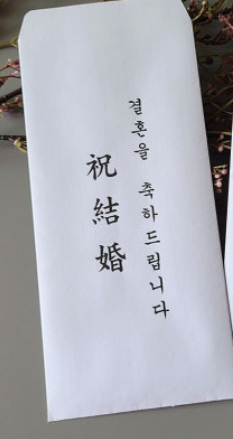 결혼을 축하드립니다
祝結婚